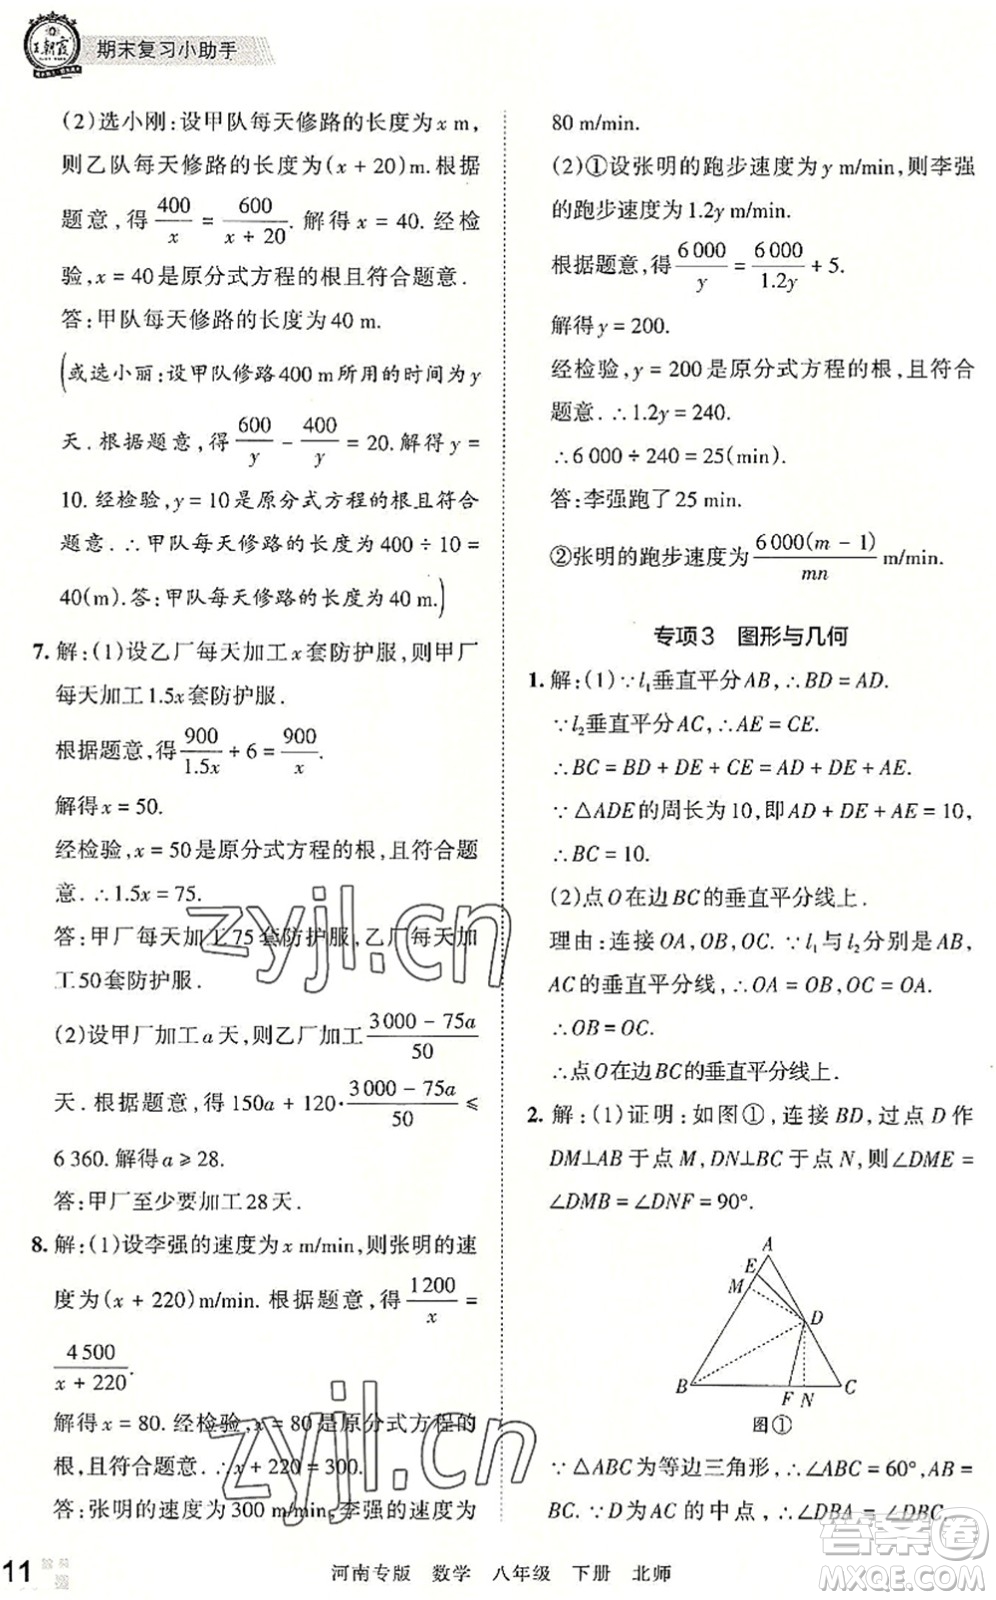 王朝霞
期末复习小助手
(2)选小刚:设甲队每天修路的长度为x m,
则乙队每天修路的长度为(x + 20)m. 根据
题意,得 400/x = 600/(x + 20). 解得 x = 40. 经检
验,x = 40 是原分式方程的根且符合题意.
答:甲队每天修路的长度为 40 m.
(或选小丽:设甲队修路 400 m 所用的时间为 y
天. 根据题意,得 600/y - 400/y = 20. 解得 y =
10. 经检验,y = 10 是原分式方程的根且符合
题意. ∴甲队每天修路的长度为 400 ÷ 10 =
40(m). 答:甲队每天修路的长度为 40 m.)
7. 解:(1)设乙厂每天加工x套防护服,则甲厂
每天加工1.5x套防护服.
根据题意,得 900/1.5x + 6 = 900/x.
解得 x = 50.
经检验,x = 50 是原分式方程的根,且符合题
意. ∴1.5x = 75.
答:甲厂每天加工75套防护服,乙厂每天加
工50套防护服.
(2)设甲厂加工a天,则乙厂加工 (3 000 - 75a)/50
天. 根据题意,得 150a + 120·(3 000 - 75a)/50 ≤
6 360. 解得 a ≥ 28.
答:甲厂至少要加工28天.
8. 解:(1)设李强的速度为x m/min,则张明的速
度为(x + 220)m/min. 根据题意,得 1200/x =
4 500/(x + 220).
解得 x = 80. 经检验,x = 80 是原分式方程的
根,且符合题意. ∴x + 220 = 300.
答:张明的速度为300 m/min,李强的速度为
80 m/min.
(2)①设张明的跑步速度为y m/min,则李强
的跑步速度为1.2y m/min.
根据题意,得 6 000/y = 6 000/1.2y + 5.
解得 y = 200.
经检验,y = 200 是原分式方程的根,且符合
题意. ∴1.2y = 240.
∴6 000 ÷ 240 = 25(min).
答:李强跑了 25 min.
②张明的跑步速度为 6 000(m - 1)/mn m/min.
专项3 图形与几何
1. 解:(1)∵l₁垂直平分AB,∴BD = AD.
∵l₂垂直平分AC,∴AE = CE.
∴BC = BD + DE + CE = AD + DE + AE.
∵△ADE的周长为10,即AD + DE + AE = 10,
∴BC = 10.
(2)点O在边BC的垂直平分线上.
理由:连接OA,OB,OC. ∵l₁与l₂分别是AB,
AC的垂直平分线,∴OA = OB,OC = OA.
∴OB = OC.
∴点O在边BC的垂直平分线上.
2. 解:(1)证明:如图①,连接BD,过点D作
DM⊥AB于点M,DN⊥BC于点N,则∠DME =
∠DMB = ∠DNF = 90°.
A
E
M
D
B
F N C
图①
∵△ABC为等边三角形,∴∠ABC = 60°,AB =
BC. ∵D为AC的中点,∴∠DBA = ∠DBC.
zyjl.cn
zyjl.cn
答案圈
MXQE.COM
11
河南专版 数学 八年级 下册 北师